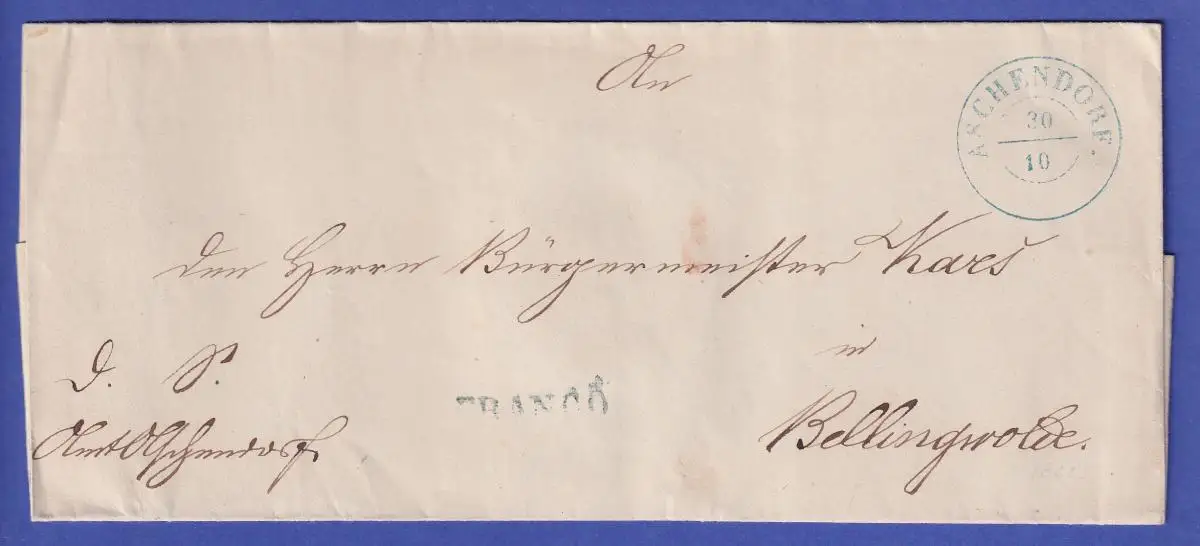 An
ASCHENDORF.
30
10
den Herrn Bürgermeister Kars
in
D. S.
FRANCO
Bellingwolde.
Amt Aschendorf